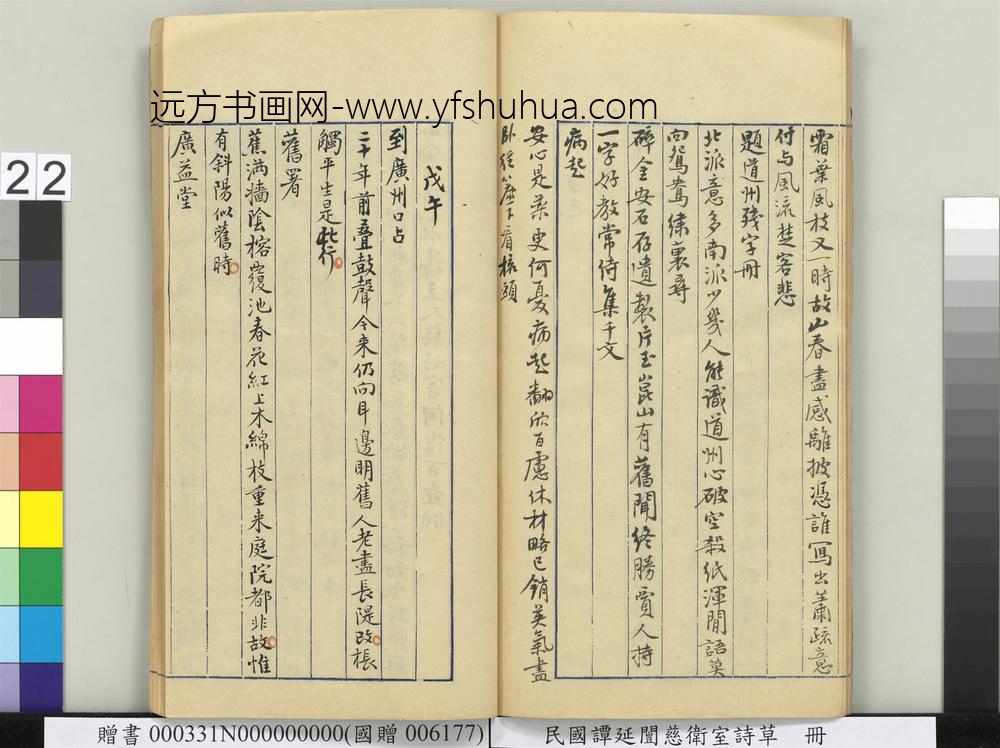 远方书画网-www.yfshuhua.com
霜葉風枝又一時故山春盡感離披憑誰寫出蕭疏意
付与風流楚客悲
題道州殘字冊
北派意多南派少幾人能識道州心破空殺紙渾閒語莫
向鴛鴦繡裏尋
碎金安石存遺製片玉崑山有舊聞終勝賈人持
一字好教常侍集千文
病起
安心是藥更何憂病起翻欣百慮休材略已銷英氣盡
臥從簾下看梳頭
戊午
到廣州口占
二十年前疊鼓聲今來仍向耳邊明舊人老盡長隄改棖
觸平生是此行
舊署
蕉滿牆陰榕覆池春花紅上木綿枝重來庭院都非故惟
有斜陽似舊時
廣益堂
22
贈書 000331N000000000(國贈 006177)
民國譚延闓慈衛室詩草 冊